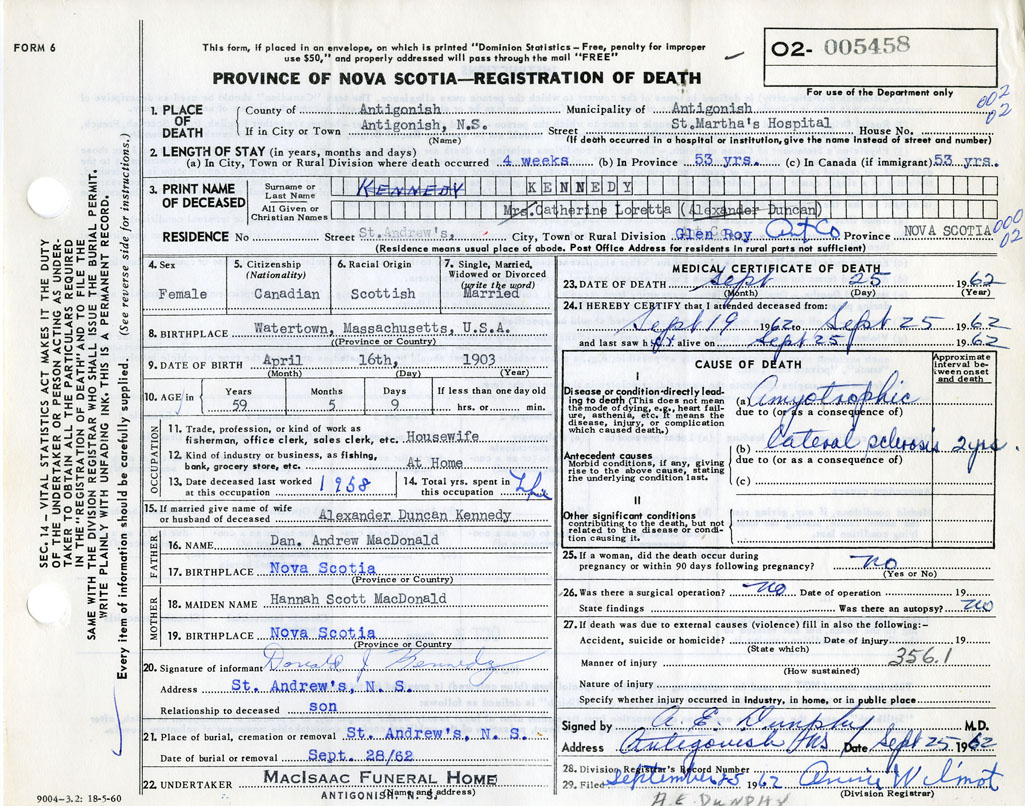 FORM 6
This form, if placed in an envelope, on which is printed "Dominion Statistics – Free, penalty for improper
use $50," and properly addressed will pass through the mail "FREE"
O2- 005458
PROVINCE OF NOVA SCOTIA—REGISTRATION OF DEATH
For use of the Department only
002
02
1. PLACE OF DEATH
County of Antigonish Municipality of Antigonish
If in City or Town Antigonish, N.S. Street St.Martha's Hospital House No.
(Name) (If death occurred in a hospital or institution, give the name instead of street and number)
2. LENGTH OF STAY (in years, months and days)
(a) In City, Town or Rural Division where death occurred 4 weeks (b) In Province 53 yrs. (c) In Canada (if immigrant) 53 yrs.
3. PRINT NAME OF DECEASED
Surname or Last Name KENNEDY KENNEDY
All Given or Christian Names Mrs. Catherine Loretta (Alexander Duncan)
RESIDENCE No Street St.Andrew's, City, Town or Rural Division Glen Roy Ant Co Province NOVA SCOTIA
000
02
(Residence means usual place of abode. Post Office Address for residents in rural parts not sufficient)
4. Sex
Female
5. Citizenship (Nationality)
Canadian
6. Racial Origin
Scottish
7. Single, Married, Widowed or Divorced (write the word)
Married
8. BIRTHPLACE Watertown, Massachusetts, U.S.A.
(Province or Country)
9. DATE OF BIRTH April 16th, 1903
(Month) (Day) (Year)
10. AGE in Years Months Days If less than one day old
59 5 9 hrs. or min.
OCCUPATION
11. Trade, profession, or kind of work as
fisherman, office clerk, sales clerk, etc. Housewife
12. Kind of industry or business, as fishing,
bank, grocery store, etc. At Home
13. Date deceased last worked at this occupation 1958
14. Total yrs. spent in this occupation Life
15. If married give name of wife
or husband of deceased Alexander Duncan Kennedy
FATHER
16. NAME Dan. Andrew MacDonald
17. BIRTHPLACE Nova Scotia
(Province or Country)
MOTHER
18. MAIDEN NAME Hannah Scott MacDonald
19. BIRTHPLACE Nova Scotia
(Province or Country)
20. Signature of informant Donald J Kennedy
Address St. Andrew's, N. S.
Relationship to deceased son
21. Place of burial, cremation or removal St. Andrew's, N. S.
Date of burial or removal Sept. 28/62
22. UNDERTAKER MACISAAC FUNERAL HOME
ANTIGONISH, N. S. (Name and address)
9004–3.2: 18-5-60
MEDICAL CERTIFICATE OF DEATH
23. DATE OF DEATH Sept 25 1962
(Month) (Day) (Year)
24. I HEREBY CERTIFY that I attended deceased from:
Sept 19 1962 to Sept 25 1962
and last saw her alive on Sept 25 1962
CAUSE OF DEATH
Approximate interval between onset and death
I
Disease or condition directly leading to death (This does not mean the mode of dying, e.g., heart failure, asthenia, etc. It means the disease, injury, or complication which caused death.)
(a) Amyotrophic
due to (or as a consequence of)
Antecedent causes
Morbid conditions, if any, giving rise to the above cause, stating the underlying condition last.
(b) Lateral sclerosis 2yrs.
due to (or as a consequence of)
(c)
II
Other significant conditions
contributing to the death, but not related to the disease or condition causing it.
25. If a woman, did the death occur during
pregnancy or within 90 days following pregnancy? no
(Yes or No)
26. Was there a surgical operation? no Date of operation 19
State findings Was there an autopsy? no
27. If death was due to external causes (violence) fill in also the following:-
Accident, suicide or homicide? Date of injury 19
(State which)
Manner of injury 356.1
(How sustained)
Nature of injury
Specify whether injury occurred in industry, in home, or in public place
Signed by A. E. Dunphy M.D.
Address Antigonish NS Date Sept 25 1962
28. Division Registrar's Record Number
29. Filed September 25 1962 Annie Wilmot
(Division Registrar)
A.E. DUNPHY
SEC. 14 – VITAL STATISTICS ACT MAKES IT THE DUTY
OF THE UNDERTAKER OR PERSON ACTING AS UNDERTAKER TO OBTAIN ALL THE PARTICULARS REQUIRED
IN THE "REGISTRATION OF DEATH" AND TO FILE THE
SAME WITH THE DIVISION REGISTRAR WHO SHALL ISSUE THE BURIAL PERMIT.
WRITE PLAINLY WITH UNFADING INK. THIS IS A PERMANENT RECORD.
Every item of information should be carefully supplied. (See reverse side for instructions.)